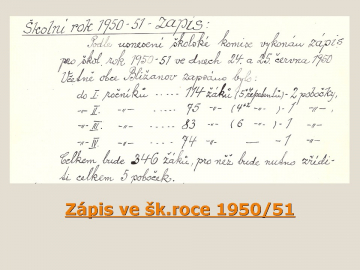 Školní rok 1950-51 - zápis:
Podle usnesení školské komise vykonán zápis
pro škol. rok 1950-51 ve dnech 24. a 25. června 1950
Včetně obce Blížanov zapsáno bylo:
do I. ročníků ..... 114 žáků (5 repetentů) - 2 pobočky,
" II. -"- ..... 75 -"- (4 -"- ) - 1 -"-
" III. -"- ..... 83 -"- (6 -"- ) - 1 -"-
" IV. -"- ..... 74 -"- — - 1 -"-
Celkem bude 346 žáků, pro něž bude nutno zřídi-
ti celkem 5 poboček.
Zápis ve šk.roce 1950/51